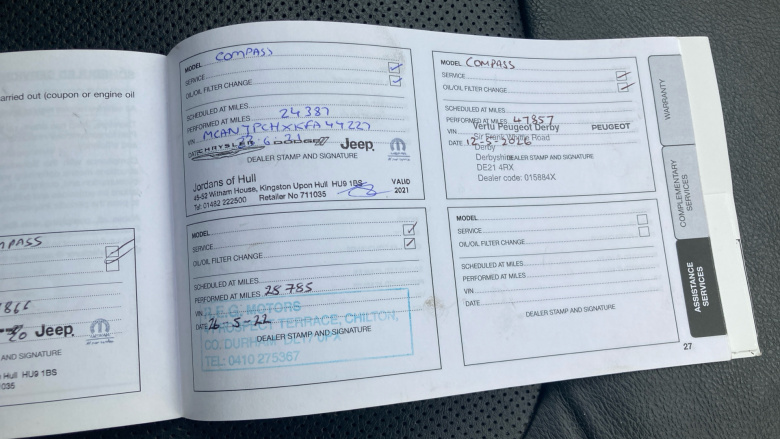 arried out (coupon or engine oil
MPASS
1866
20 Jeep
AND SIGNATURE
Hull HU9 1BS
035
MODEL COMPASS
SERVICE
OIL/OIL FILTER CHANGE
SCHEDULED AT MILES
PERFORMED AT MILES 24387
VIN MCANJPCHXKFA44227
DATE CHRYSLER DODGE Jeep
DEALER STAMP AND SIGNATURE
Jordans of Hull
45-52 Witham House, Kingston Upon Hull HU9 1BS
Tel: 01482 222500 Retailer No 711035
VALID
2021
MODEL
SERVICE
OIL/OIL FILTER CHANGE
SCHEDULED AT MILES
PERFORMED AT MILES 28785
VIN
DATE 26-5-22
R.E.G. MOTORS
TERRACE, CHILTON,
CO. DURHAM
DEALER STAMP AND SIGNATURE
TEL: 0410 275367
MODEL COMPASS
SERVICE
OIL/OIL FILTER CHANGE
SCHEDULED AT MILES
PERFORMED AT MILES 47857
VIN
Vertu Peugeot Derby PEUGEOT
DATE 12-5-2026
Road
Derby
Derbyshire
DEALER STAMP AND SIGNATURE
DE21 4RX
Dealer code: 015884X
MODEL
SERVICE
OIL/OIL FILTER CHANGE
SCHEDULED AT MILES
PERFORMED AT MILES
VIN
DATE
DEALER STAMP AND SIGNATURE
27
WARRANTY
COMPLEMENTARY
SERVICES
ASSISTANCE
SERVICES